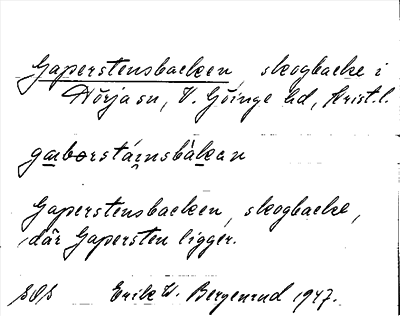 Gaperstensbacken, skogbacke i
Nörjasn, V. Göinge hd, Krist.l.
gæborstáinsbàkan
Gaperstensbacken, skogbacke,
där Gapersten ligger.
SOS Erik W. Bergenrud 1947.